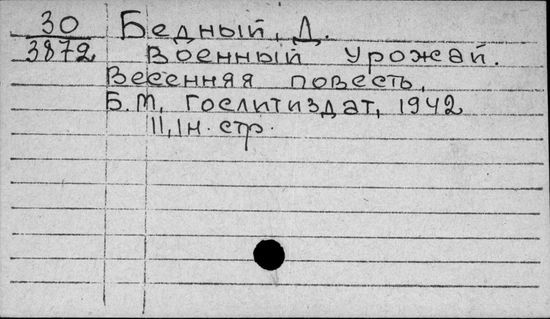 30 Бедный, Д.
3872 Военный урожай.
Весенняя повесть.
Б.М, Гослитиздат, 1942
11, 1н. стр.